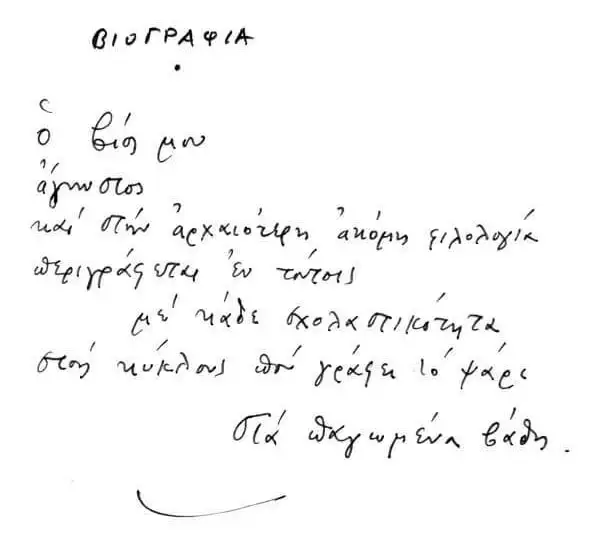 ΒΙΟΓΡΑΦΙΑ
ὁ βίος μου
ἄγνωστος
καί στήν ἀρχαιότερη ἀκόμη φιλολογία
περιγράφεται ἐν τούτοις
μέ κάθε σχολαστικότητα
στούς κύκλους πού γράφει τό ψάρι
στά παγωμένα βάθη.